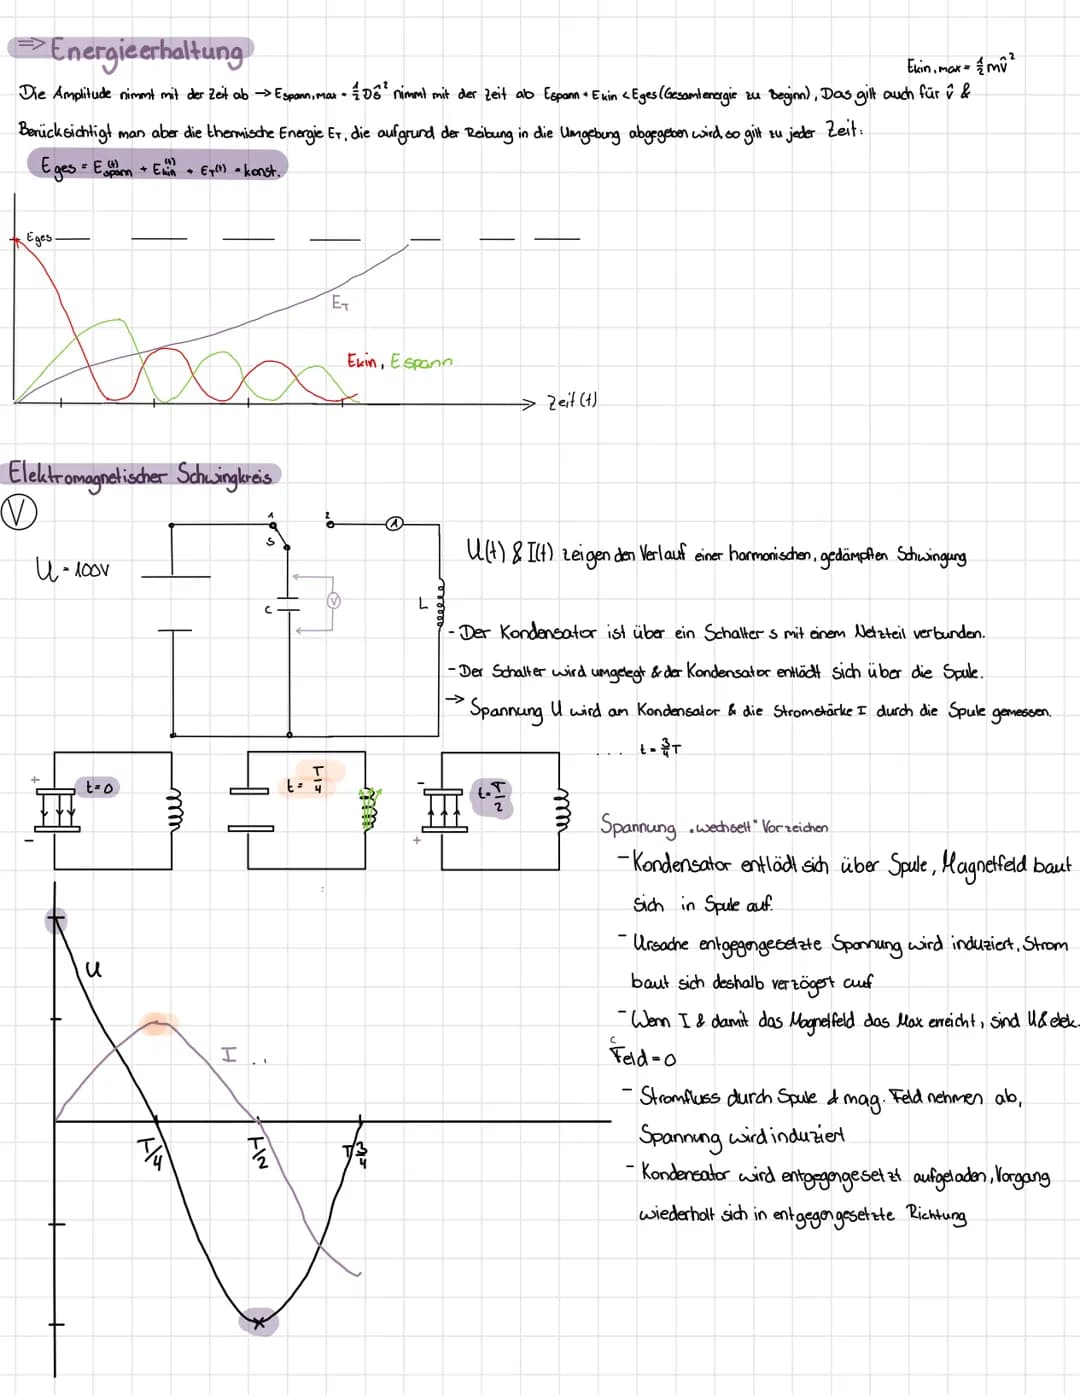 ⇒ Energieerhaltung
Ekin,max = ½mv̂²
Die Amplitude nimmt mit der Zeit ab → Espann,max = ½Dŝ² nimmt mit der Zeit ab Espann + Ekin < Eges (Gesamtenergie zu Beginn), Das gilt auch für v̂ &
Berücksichtigt man aber die thermische Energie ET, die aufgrund der Reibung in die Umgebung abgegeben wird, so gilt zu jeder Zeit:
Eges = Espann(t) + Ekin(t) + ET(t) = konst.
Eges
ET
Ekin, Espann
Zeit (t)
Elektromagnetischer Schwingkreis
V
U = 100V
1
2
S
A
C
V
L
U(t) & I(t) zeigen den Verlauf einer harmonischen, gedämpften Schwingung
- Der Kondensator ist über ein Schalter s mit einem Netzteil verbunden.
- Der Schalter wird umgelegt & der Kondensator entlädt sich über die Spule.
→ Spannung U wird am Kondensator & die Stromstärke I durch die Spule gemessen.
.... t = ¾T
+
-
t=0
t = T/4
-
+
t = T/2
Spannung „wechselt“ Vorzeichen
- Kondensator entlädt sich über Spule, Magnetfeld baut
sich in Spule auf.
- Ursache entgegengesetzte Spannung wird induziert, Strom
baut sich deshalb verzögert auf
- Wenn I & damit das Magnetfeld das Max erreicht, sind U & elek.
Feld = 0
- Stromfluss durch Spule & mag. Feld nehmen ab,
Spannung wird induziert
- Kondensator wird entgegengesetzt aufgeladen, Vorgang
wiederholt sich in entgegengesetzte Richtung
U
I ..
T/4
T/2
T¾